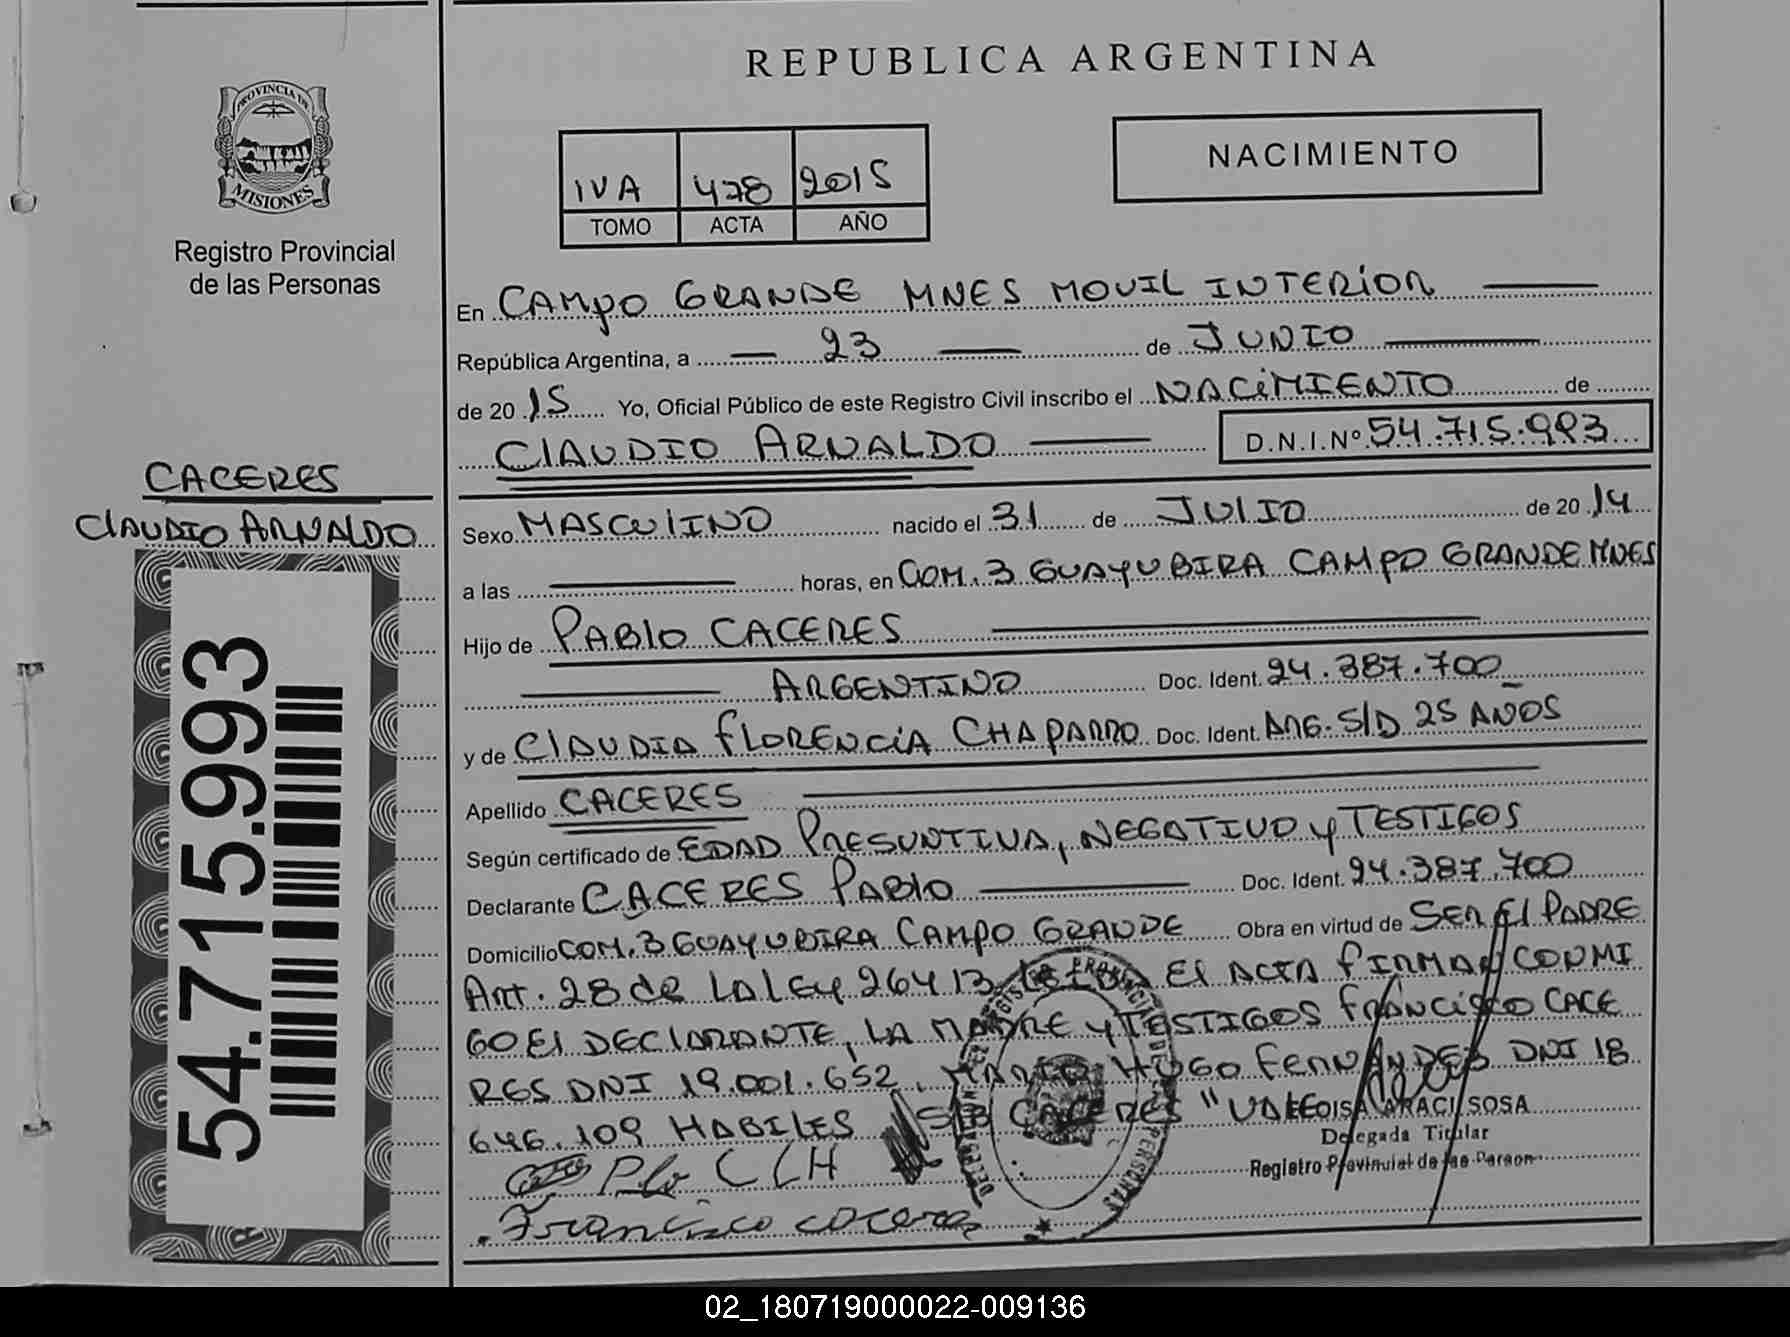 REPUBLICA ARGENTINA
PROVINCIA DE
MISIONES
Registro Provincial
de las Personas
NACIMIENTO
IVA 478 2015
TOMO ACTA AÑO
En CAMPO GRANDE MNES MOVIL INTERIOR
República Argentina, a 23 de JUNIO
de 20 15 Yo, Oficial Público de este Registro Civil inscribo el NACIMIENTO de
CLAUDIO ARNALDO D.N.I.Nº 54.715.993
CACERES
CLAUDIO ARNALDO
54.715.993
Sexo MASCULINO nacido el 31 de JULIO de 20 14
a las horas, en COM. 3 GUAYUBIRA CAMPO GRANDE MNES
Hijo de PABLO CACERES
ARGENTINO Doc. Ident. 24.387.700
y de CLAUDIA FLORENCIA CHAPARRO Doc. Ident. ARG. S/D 25 AÑOS
Apellido CACERES
Según certificado de EDAD PRESUNTIVA, NEGATIVO y TESTIGOS
Declarante CACERES PABLO Doc. Ident. 24.387.700
Domicilio COM. 3 GUAYUBIRA CAMPO GRANDE Obra en virtud de SER El PADRE
Art. 28 de LA LEY 26413 El ACTA FIRMAN CONMI
GO El DECLARANTE, LA MADRE y TESTIGOS FRANCISCO CACE
RES DNI 19.001.652, MARIO HUGO FERNANDES DNI 18
646.109 HABILES S/B CACERES "VALE
ARACI SOSA
Delegada Titular
Registro Provincial de las Person
C C H
Francisco caceres
02_180719000022-009136